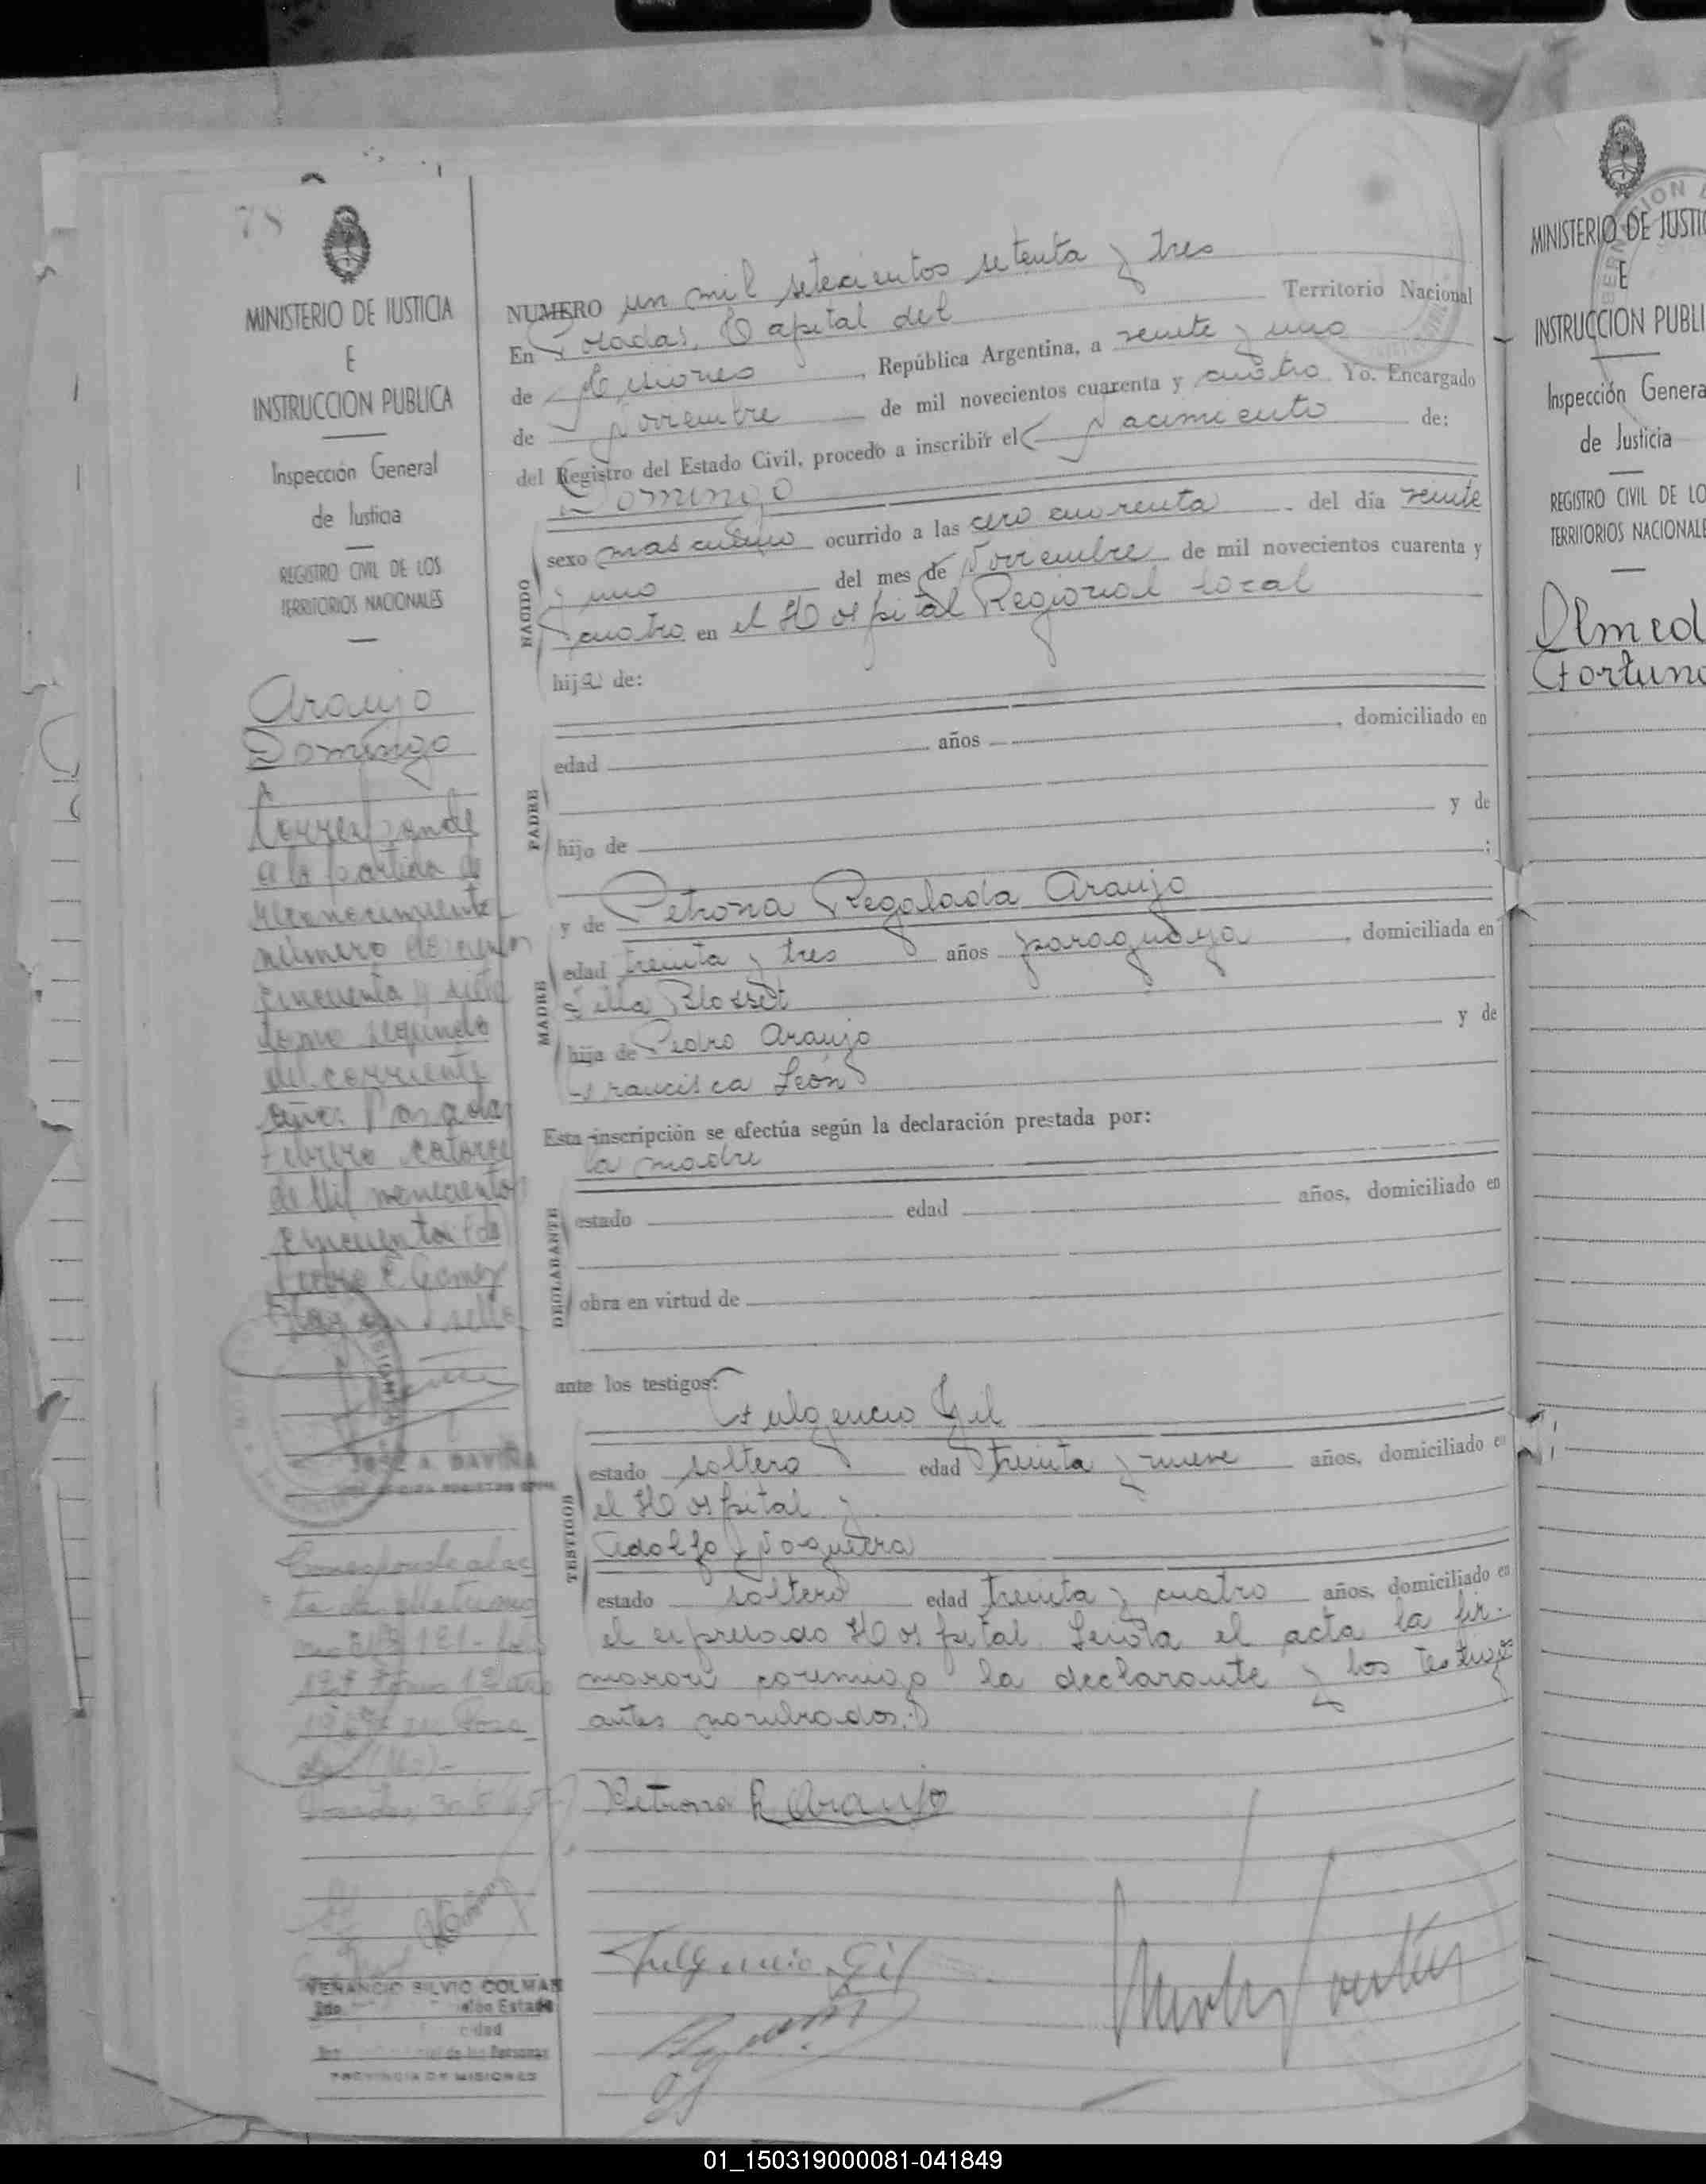 78
MINISTERIO DE JUSTICIA
E
INSTRUCCION PUBLICA
Inspección General
de Justicia
REGISTRO CIVIL DE LOS
TERRITORIOS NACIONALES
Araujo
Domingo
Corresponde
a la partida de
reconocimiento
número doscientos
cincuenta y siete
tomo segundo
del corriente
año. Posadas
febrero catorce
de mil novecientos
cincuenta
Pedro E. Gomez
Hay un sello
JOSÉ A. DAVIÑA
Corresponde al ac
ta de Matrimo
nio Nº 121
Tomo 1º
en Posa
das
Posadas, 30
VENANCIO SILVIO COLMAN
Estado
de las Personas
PROVINCIA DE MISIONES
NUMERO un mil setecientos setenta y tres
En Posadas, Capital del Territorio Nacional
de Misiones, República Argentina, a veinte y uno
de Noviembre de mil novecientos cuarenta y cuatro Yo. Encargado
del Registro del Estado Civil, procedo a inscribir el Nacimiento de:
Domingo
NACIDO
sexo masculino ocurrido a las cero cuarenta del día veinte
y uno del mes de Noviembre de mil novecientos cuarenta y
cuatro en el Hospital Regional local
hijo de:
PADRE
edad años , domiciliado en
hijo de y de
:
y de Petrona Regalada Araujo
MADRE
edad treinta y tres años paraguaya, domiciliada en
Villa Blosset
hija de Pedro Araujo y de
Francisca León
Esta inscripción se efectúa según la declaración prestada por:
la madre
DECLARANTE
estado edad años, domiciliado en
obra en virtud de
ante los testigos:
Fulgencio Gil
TESTIGOS
estado soltero edad treinta y nueve años, domiciliado en
el Hospital y
Adolfo Noguera
estado soltero edad treinta y cuatro años, domiciliado en
el expresado Hospital. Leída el acta la fir-
maron conmigo la declarante y los testigos
antes nombrados.
Petrona R Araujo
Fulgencio Gil
MINISTERIO DE JUSTIC
E
INSTRUCCION PUBLI
Inspección Genera
de Justicia
REGISTRO CIVIL DE LO
TERRITORIOS NACIONALE
Olmed
Fortun
01_150319000081-041849